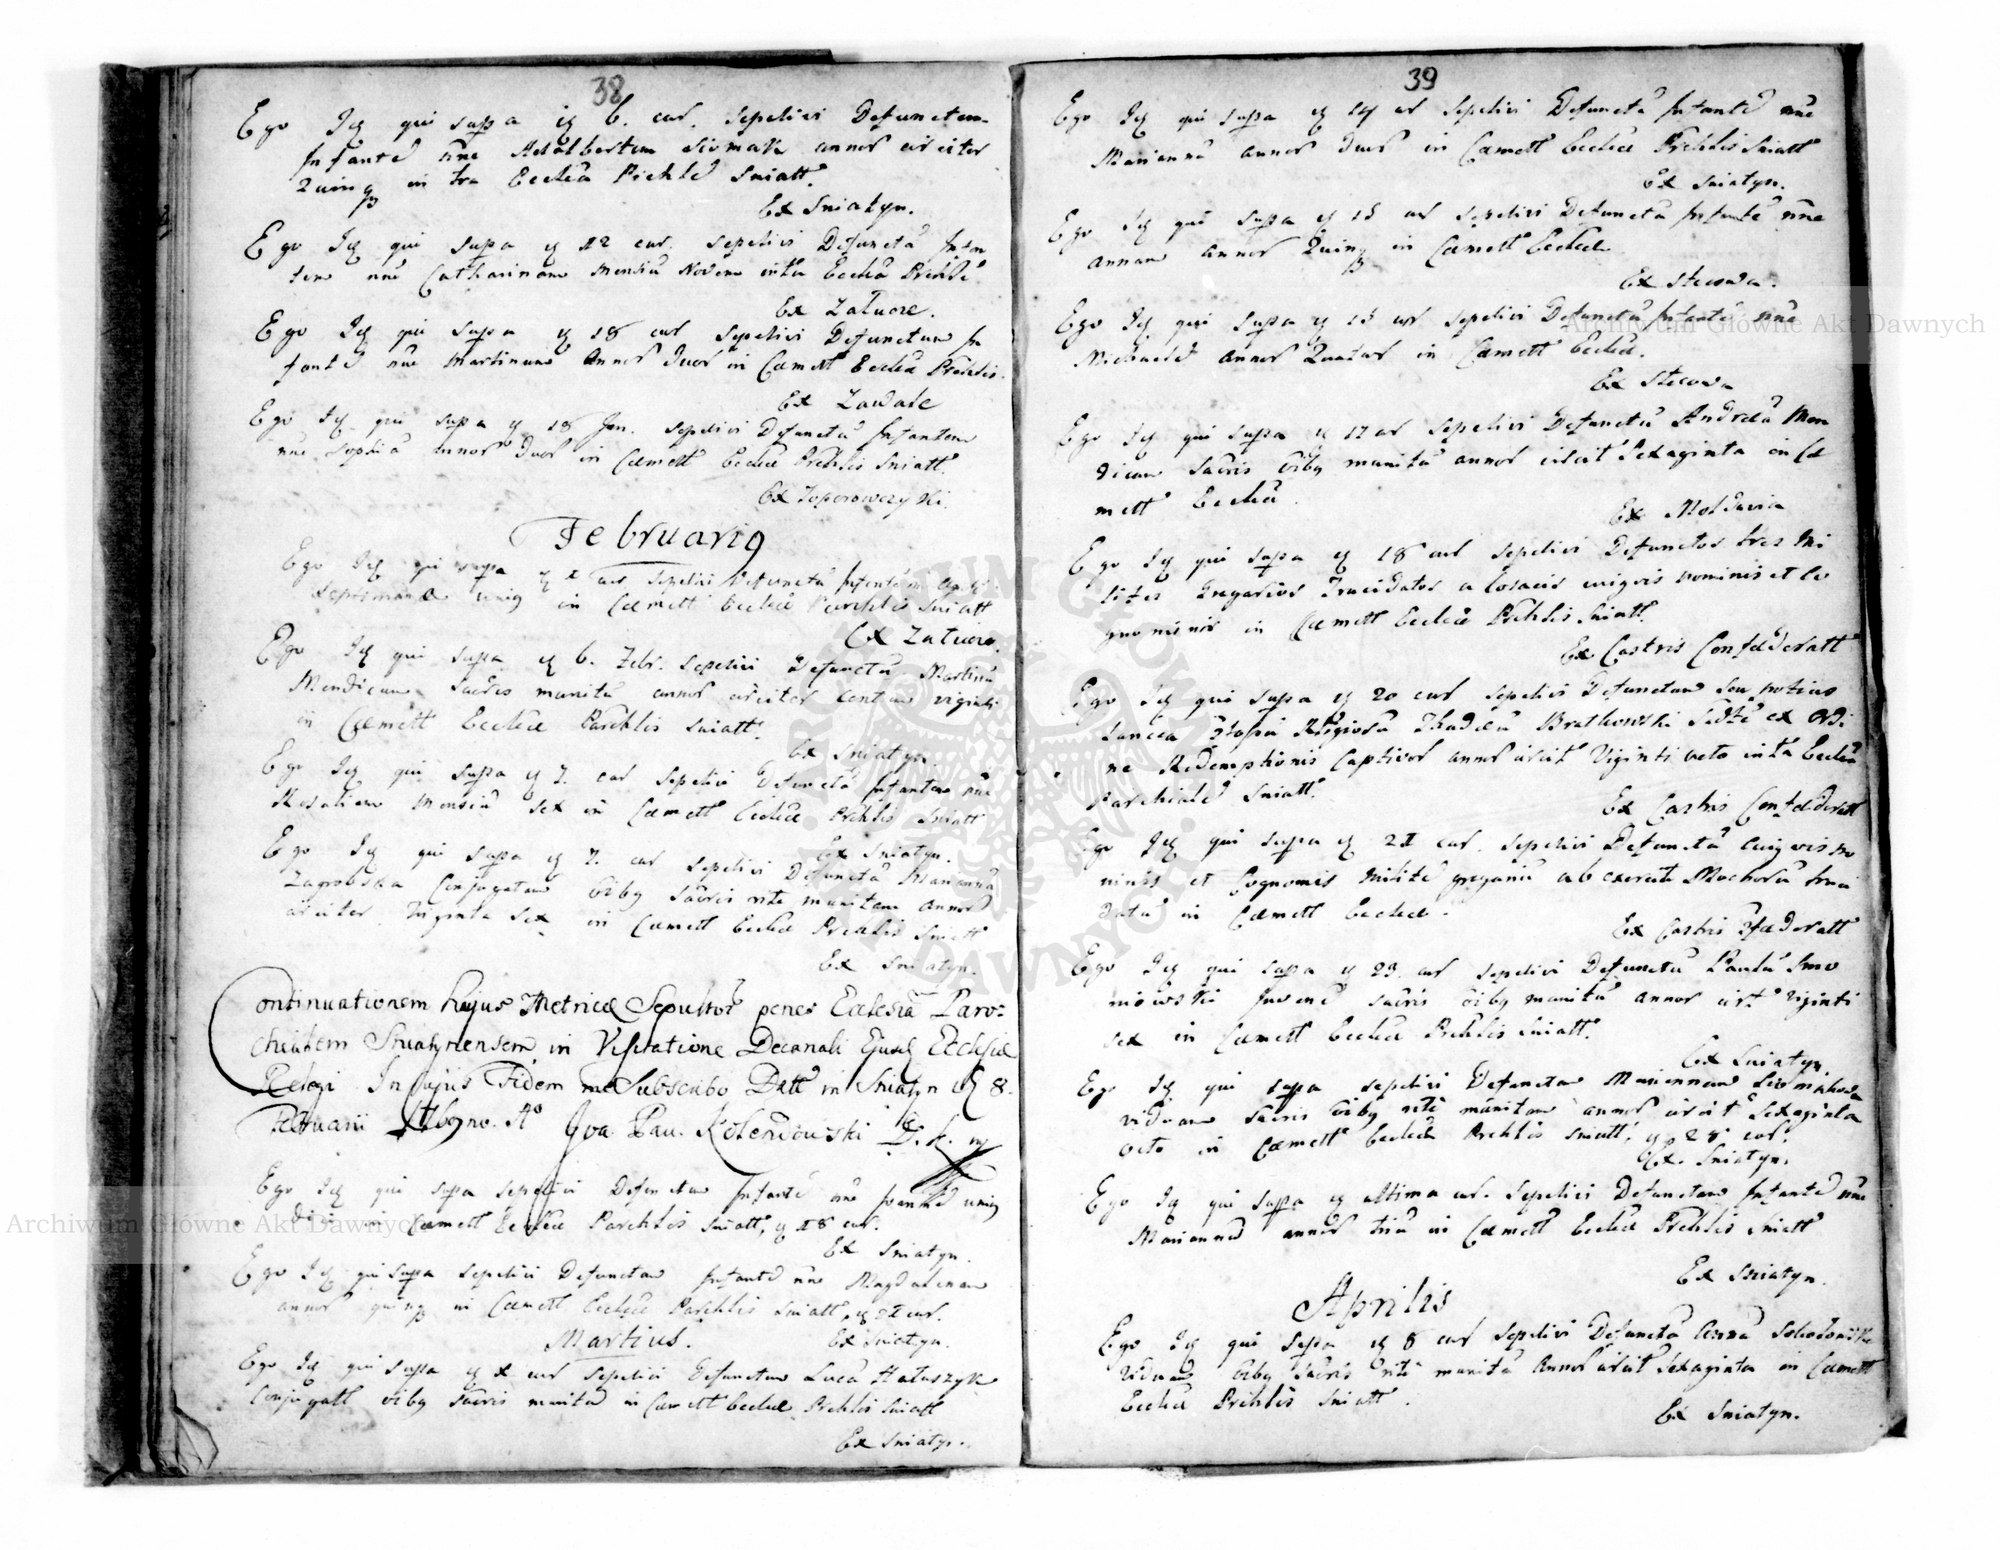 38
Ego Idq qui supa q 6. cur. sepelivi Defunctum
Infante nne Adalbertum Siomak annor circiter
Quinq in tra Eccliã Pichle Sniatt.
Ex Sniatyn.
Ego Idq qui supa q 12 cur. sepelivi Defunctã Infan
tem nne Catharinam Mensiũ Novem intra Eccliã Prchle
Ex Zatucze.
Ego Idq qui supa q 18 cur sepelivi Defunctum In
fante nne Martinum Annor duor in Cœmett Eccliæ Prchlis.
Ex Zawale
Ego Idq qui supa q 18 Jan. sepelivi Defunctã Infantem
nne Sophiã annor duor in Cœmett Eccliæ Prchlis Sniatt.
Ex Toporowczyki.
Februarig
Ego Idq qui supa q cur sepelivi Defunctã Infantem
Septimanæ unig in Cœmett Eccliæ Parchlis Sniatt
Ex Zatucze.
Ego Idq qui supa q 6. Febr. sepelivi Defunctũ Martinũ
Mendicum Sacris munitũ annor circiter Centum viginti
in Cœmett Eccliæ Parchlis Sniatt.
Ex Sniatyn.
Ego Idq qui supa q 7. cur sepelivi Defunctã Infantem nne
Rosaliam Mensiũ sex in Cœmett Eccliæ Prchlis Sniatt
Ex Sniatyn.
Ego Idq qui supa q 7. cur sepelivi Defunctã Mariannã
Zagrobska Conjugatam õibg sacris rite munitam annor
circiter Viginta sex in Cœmett Eccliæ Prchlis Sniatt
Ex Sniatyn.
Continuationem hujus Metricæ Sepultor penes Ecclesiã Paro-
chialem Sniatynensem in Visitatione Decanali Ejusq Ecclesiæ
Relegi In cujus Fidem me Subscribo Datt in Sniatyn q 8.
Februarii Aº Kolendowski D. S. mp
Ego Idq qui supa sepelivi Defunctum Infante nne Joannem unig
diei in Cœmett Eccliæ Parchlis Sniatt, q 18 cur.
Ex Sniatyn.
Ego Idq qui supa sepelivi Defunctam Infante nne Magdalenam
annor quinq in Cœmett Eccliæ Parchlis Sniatt, q 21 cur.
Ex Sniatyn.
Martius.
Ego Idq qui supa q cur sepelivi Defunctum Lucã Hatuszyk
Conjugatt õibg sacris munitũ in Cœmett Eccliæ Prchlis Sniatt
Ex Sniatyn.
39
Ego Idq qui supa q 14 cur sepelivi Defunctã Infante nne
Mariannã annor duor in Cœmett Eccliæ Prchlis Sniatt
Ex Sniatyn.
Ego Idq qui supa q 15 cur sepelivi Defunctã Infante nne
Annam annor Quinq in Cœmett Eccliæ
Ex Stecowa.
Ego Idq qui supa q 15 cur sepelivi Defunctũ Infante nne
Michaele annor Quatuor in Cœmett Eccliæ.
Ex Stecowa
Ego Idq qui supa q 17 cur sepelivi Defunctũ Andreã Men
dicum Sacris õibg munitũ annor circit Sexaginta in Cœ
mett Eccliæ.
Ex Moldavia
Ego Idq qui supa q 18 cur sepelivi Defunctos tres Mi
lites Gregarios Trucidatos a Cosacis cuigvis nominis et co
gnominis in Cœmett Eccliæ Prchlis Sniatt.
Ex Castris Confæderatt
Ego Idq qui supa q 20 cur sepelivi Defunctum seu potius
lancea Religiosũ Thadeũ Bratkowski ex Ordi
ne Redemptionis Captivor annor circit Viginti octo intra Eccliã
Parchiale Sniatt.
Ex Castris Confæderatt
Ego Idq qui supa q 21 cur. sepelivi Defunctũ Cuigvis no
minis et Cognomis Milite gregariũ ab exercitu Moschorũ truci
datũ in Cœmett Eccliæ.
Ex Castris 3fæderatt
Ego Idq qui supa q 23. cur sepelivi Defunctũ Paulũ Smo
niowski Juvene sacris õibg munitũ annor circit viginti
sex in Cœmett Eccliæ Prchlis Sniatt.
Ex Sniatyn.
Ego Idq qui supa sepelivi Defunctam Mariannam Siomakowa
viduam sacris õibg rite munitam annor circit Sexaginta
octo in Cœmett Eccliæ Prchlis Sniatt, q 28 cur.
Ex. Sniatyn.
Ego Idq qui supa q ultima cur. sepelivi Defunctam Infante nne
Mariannã annor triũ in Cœmett Eccliæ Prchlis Sniatt
Ex Sniatyn.
Aprilis
Ego Idq qui supa q 8 cur sepelivi Defunctã Annã
Viduam õibg sacris rite munitã annor circit Sexaginta in Cœmett
Eccliæ Prchlis Sniatt.
Ex Sniatyn.
Archiwum Główne Akt Dawnych
Archiwum Główne Akt Dawnych
ARCHIWUM GŁÓWNE AKT DAWNYCH